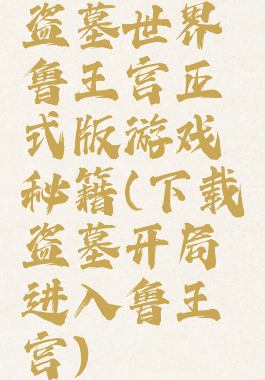 盗墓世界
鲁王宫正
式版游戏
秘籍(下载
盗墓开局
进入鲁王
宫)